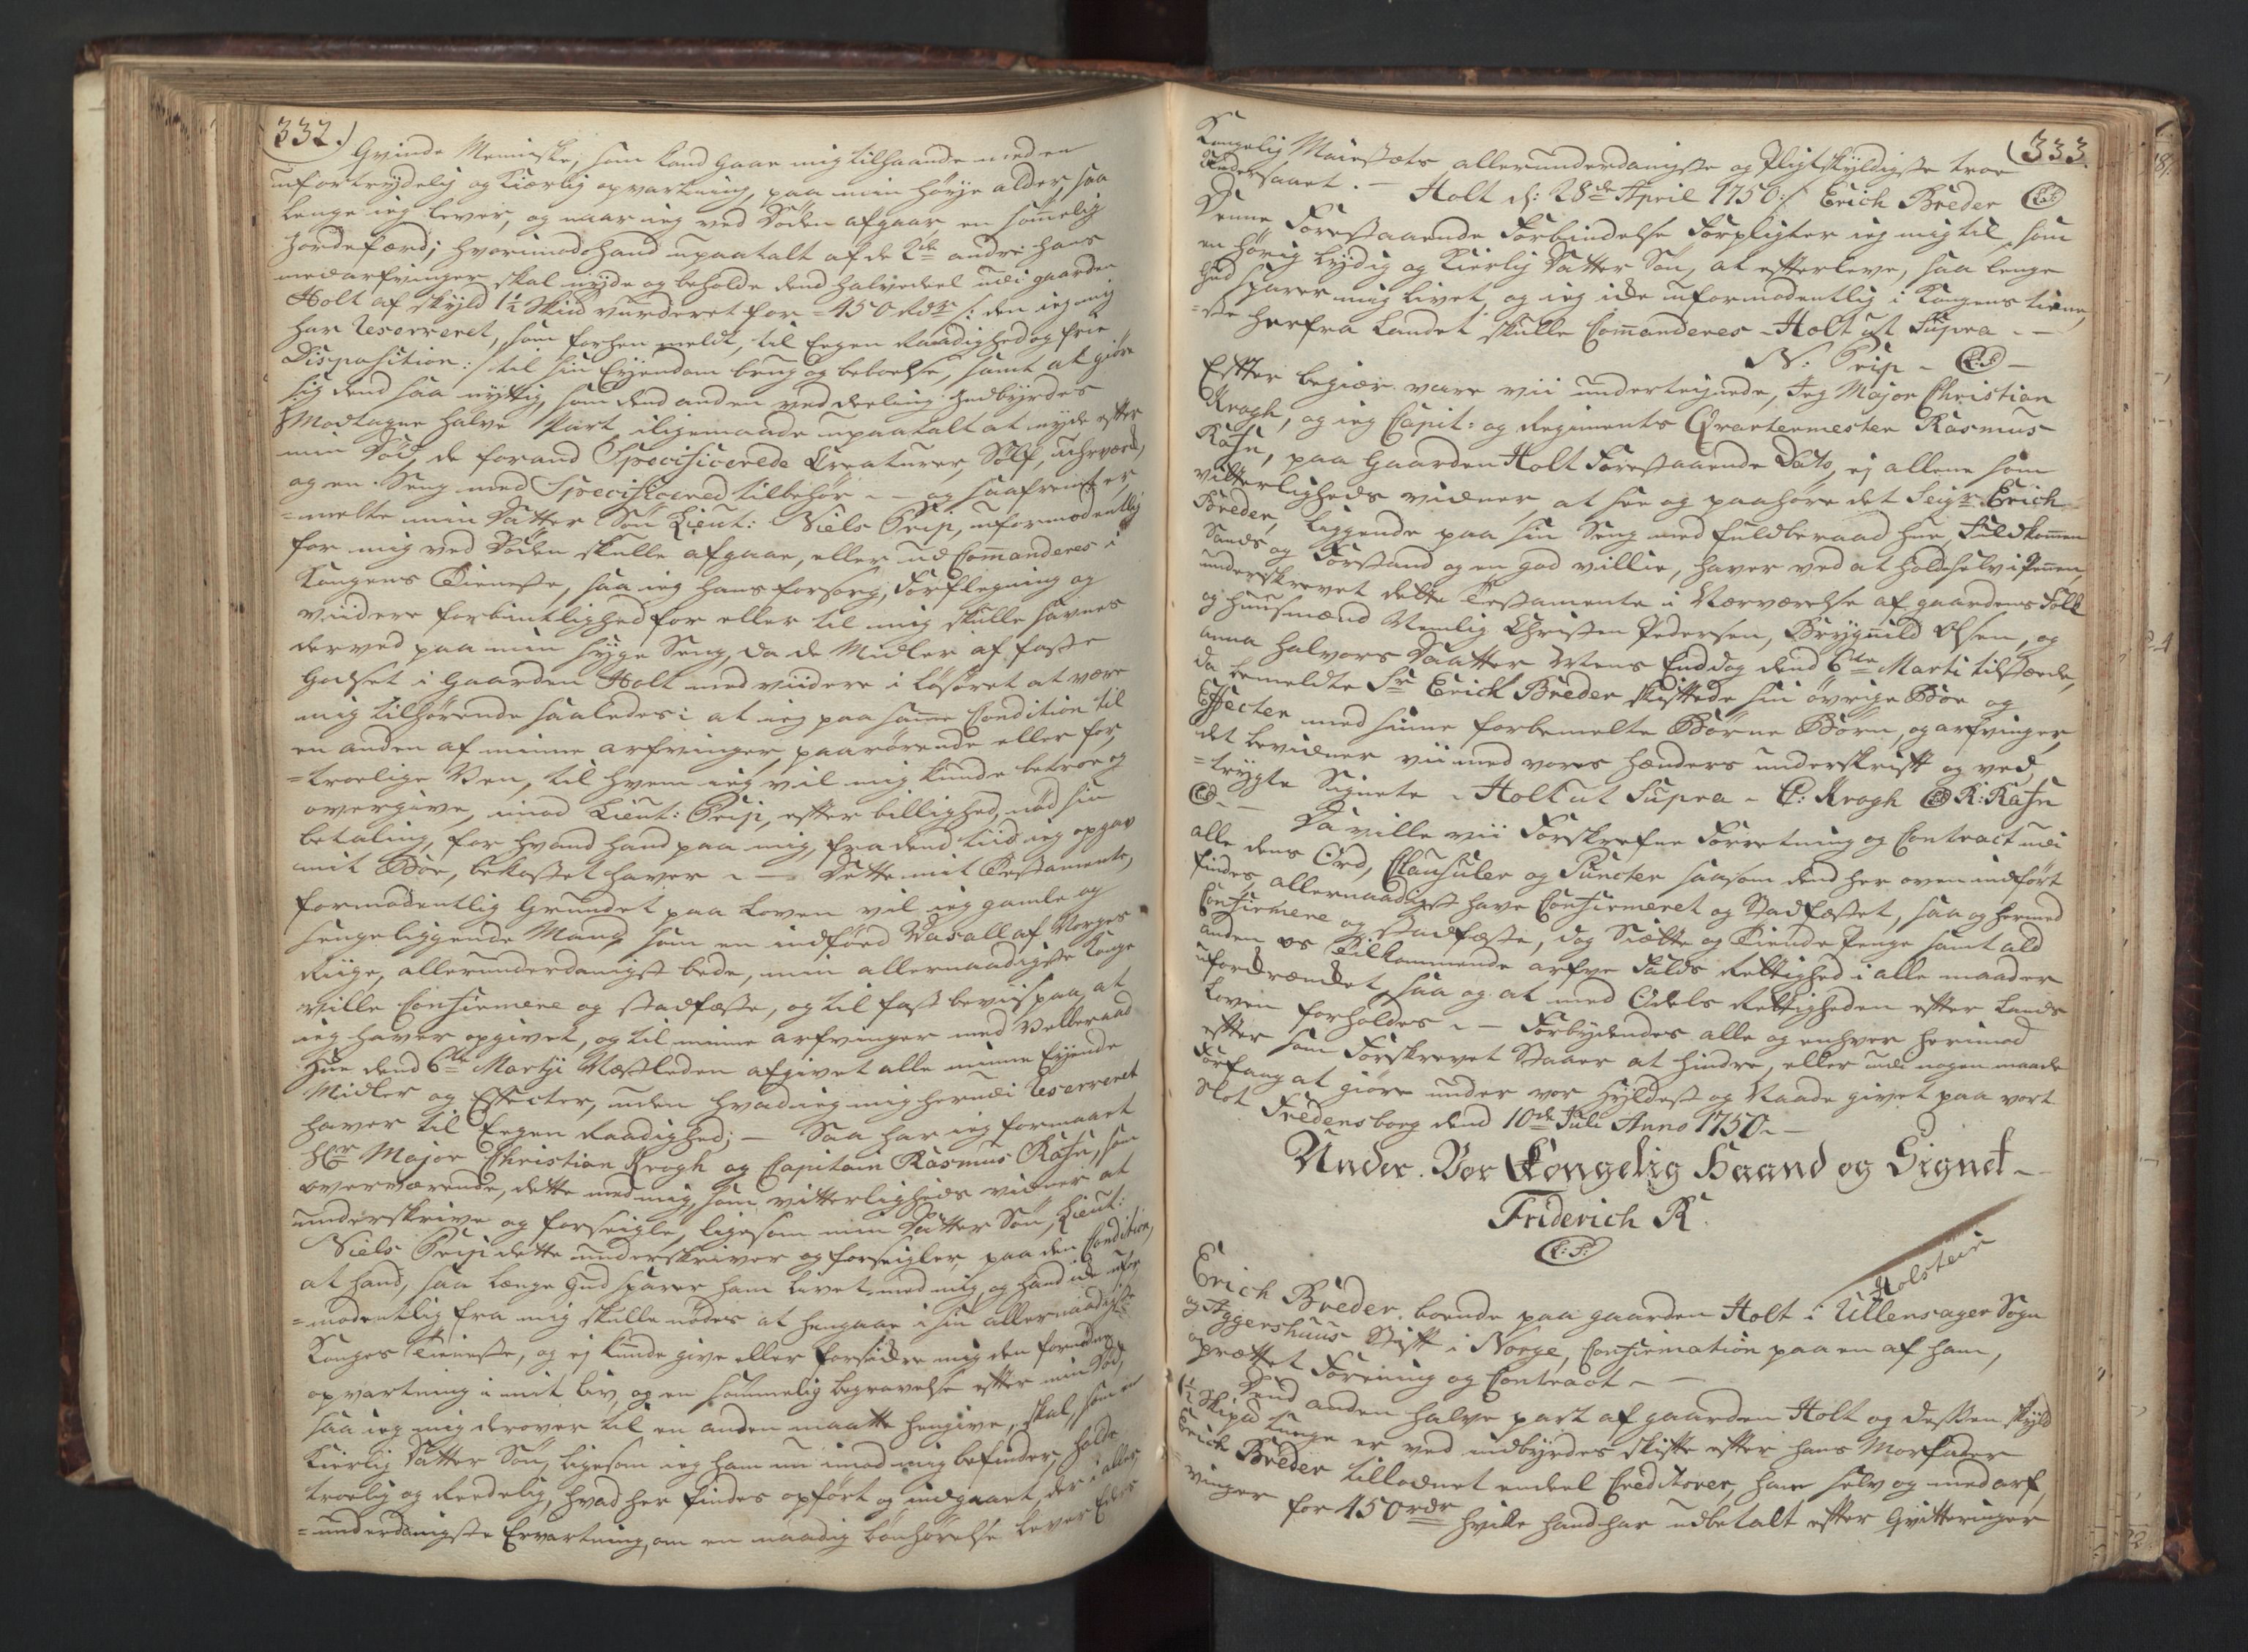 332.)
Qvinde Menniske, som kand gaae mig tilhaande med en
ufortrydelig og kiærlig opvartning, paa min høÿe alder, saa
lenge ieg lever, og naar ieg ved Døden afgaar, en sømmelig
Jordefærd; hvorimod hand upaatalt af de 2de andre hans
medarfvinger skal nyde og beholde dend halvedeel udi gaarden
Holt af skyld 1½ Skiud vurderet for = 450 Rdr /: den ieg mig
har Reserveret, som forhen meldt, til Eegen Raadighed og frie
Disposition: / til sin Eyendom brug og beboelse, samt at giøre
sig dend saa nyttig, som dend anden ved deeling Indbyrdes
Modtagne halve Part, iligemaade upaatalt at nyde effter
min Død, de forand Specificerede Creaturer, Sølf, uhrværk,
og en Seng med Specificered tilbehør - - og saafremt er,
=melte min Datter Søn Lieut: Niels Prip, uformodentlig
for mig ved Døden skulle afgaae, eller ud Commanderes i
Kongens Tieneste, saa ieg hans forsorg, Forflegning og
viidere forbindtlighed for eller til mig skulle savnes
derved paa min syge Seng, da de Midler af faste
Godset i Gaarden Holt med viidere i Løsøret at være
mig tilhørende saaledes: at ieg paa samme Condition til
en anden af minne arfvinger, paarørende eller for,
=troelige Ven, til hvem ieg vil mig kunde betroe og
overgive, imod Lieut: Prip, effter billighed, nød sin
betaling, for hvad hand paa mig, fra dend tiid ieg opgav
mit Boe, bekostet haver - - Dette mit Testamente,
formodentlig Grundet paa Loven vil ieg gamle og
sengeliggende Mand, som en indføed Vasall af Norges
Riige, allerunderdanigst bede, min allernaadigste Konge
ville Confirmere og stadfæste, og til fast beviis paa, at
ieg haver opgivet, og til minne arfvinger med Velberaad
Hue dend 6te Martji Næstleden afgivet alle minne Eyende
Midler og Effecter, uden hvad ieg mig herudi Reserveret
haver til Eegen Raadighed; - Saa har ieg formaaet
Hr Major Christian Krogh og Capitain Rasmus Rafn, som
overværende, dette med mig, som vitterligheds vidner at
underskrive og forseigle, ligesom min Datter Søn, Lieut:
Niels Prip dette underskriver og forseigler, paa den Condition,
at hand, saa længe Gud sparer ham livet med mig, og hand ide ufor
=modentlig fra mig skulle nødes at hengaae i sin allernaadigste
Konges Tieneste, og ej kunde give eller forsidre mig den fornødne
opvartning i mit liv, og en sømmelig begravelse effter min Død,
saa ieg mig derover til en anden maatte hengive, skal, som en
Kierlig Datter Søn, ligesom ieg ham nu imod mig befinder, holde
troelig og Reedelig, hvad her findes opført og indgaaet, der i aller,
=underdanigste Ervartning, om en naadig bønhørelse lever Eders
(333.
Kongelig Maiestæts allerunderdanigste og Pligtskyldigste troe
Undersaat. - Holt d: 28de April 1750 :/ Erich Breder (L.S.)
Denne Forestaaende Forbindelse Forpligter ieg mig til, som
en hørig lydig og kierlig Datter Søn, at effterleve, saa lenge
Gud sparer mig livet, og ieg ide uformodentlig i Kongens tiene,
=ste herfra Landet skulle Commanderes - Holt ut Supra - -
N: Prip - (L.S.) -
Effter begiær vare vii underteignede, Jeg Major Christian
Krogh, og ieg Capit: og Regiments Qvarteermester Rasmus
Rafn, paa Gaarden Holt Forestaaende Dato, ej allene som
vitterligheds vidner, at see og paahøre det Seigr Erich
Breder, liggende paa sin Seng med fuldberaad Hue, Fuldkommen
Sands og Forstand og en god villie, haver ved at holde selv i Pennen,
underskrevet dette Testamente i Nærværelse af gaardens Folk
og huusmænd Nemlig Christen Pedersen, Brÿgnild Olsen, og
anna Halvors Daatter Mens End dog dend 6te Marti tilstæde,
da bemeldte Sr Erich Breder skiftede sin øvrige Boe og
Effecter med sinne forbemelte Børne Børn, og arfvinger,
det bevidner vii med vores Hænders underskrifft og ved,
=trygte Signete - Holt ut Supra - C: Krogh (L.S.) R: Rafn
(L.S.) - Da ville vii Forskrefne Forretning og Contract udi
alle dens Ord, Clausuler og Puncter saasom dend her oven indført
findes, allernaadigst have Confirmeret og Stadfæstet, saa og hermed
Confirmere og stadfæste, dog Siætte og Tiende Penge samt ald
anden os Tilkommende arfve Falds Rettighed i alle maader
uforkrænket, saa og at med Odels Rettigheden effter Lands
Loven forholdes - - Forbydendes alle og enhver herimod
effter som Forskrevet Staaer at hindre, eller udi nogen maade
Forfang at giøre under vor Hyldest og Naade givet paa vort
Slot Fredensborg dend 10de Juli Anno 1750 - -
Under Vor Kongelig Haand og Signet -
Friderich R
(L.S.)
Holstein
Erich Breder boende paa gaarden Holt i Ullensager Sogn
og Aggershuus Stift i Norge, Confirmation paa en af ham,
oprættet Forening og Contract - -
Dend anden halve part af gaarden Holt og dessen skyld
1½ Skipd Tunge er ved indbyrdes skifte effter hans Morfader
Erich Breder tillodnet endeel Creditorer, ham selv og medarf,
=vinger for 450 rdr hvilke hand har udbetalt effter Qvitteringer